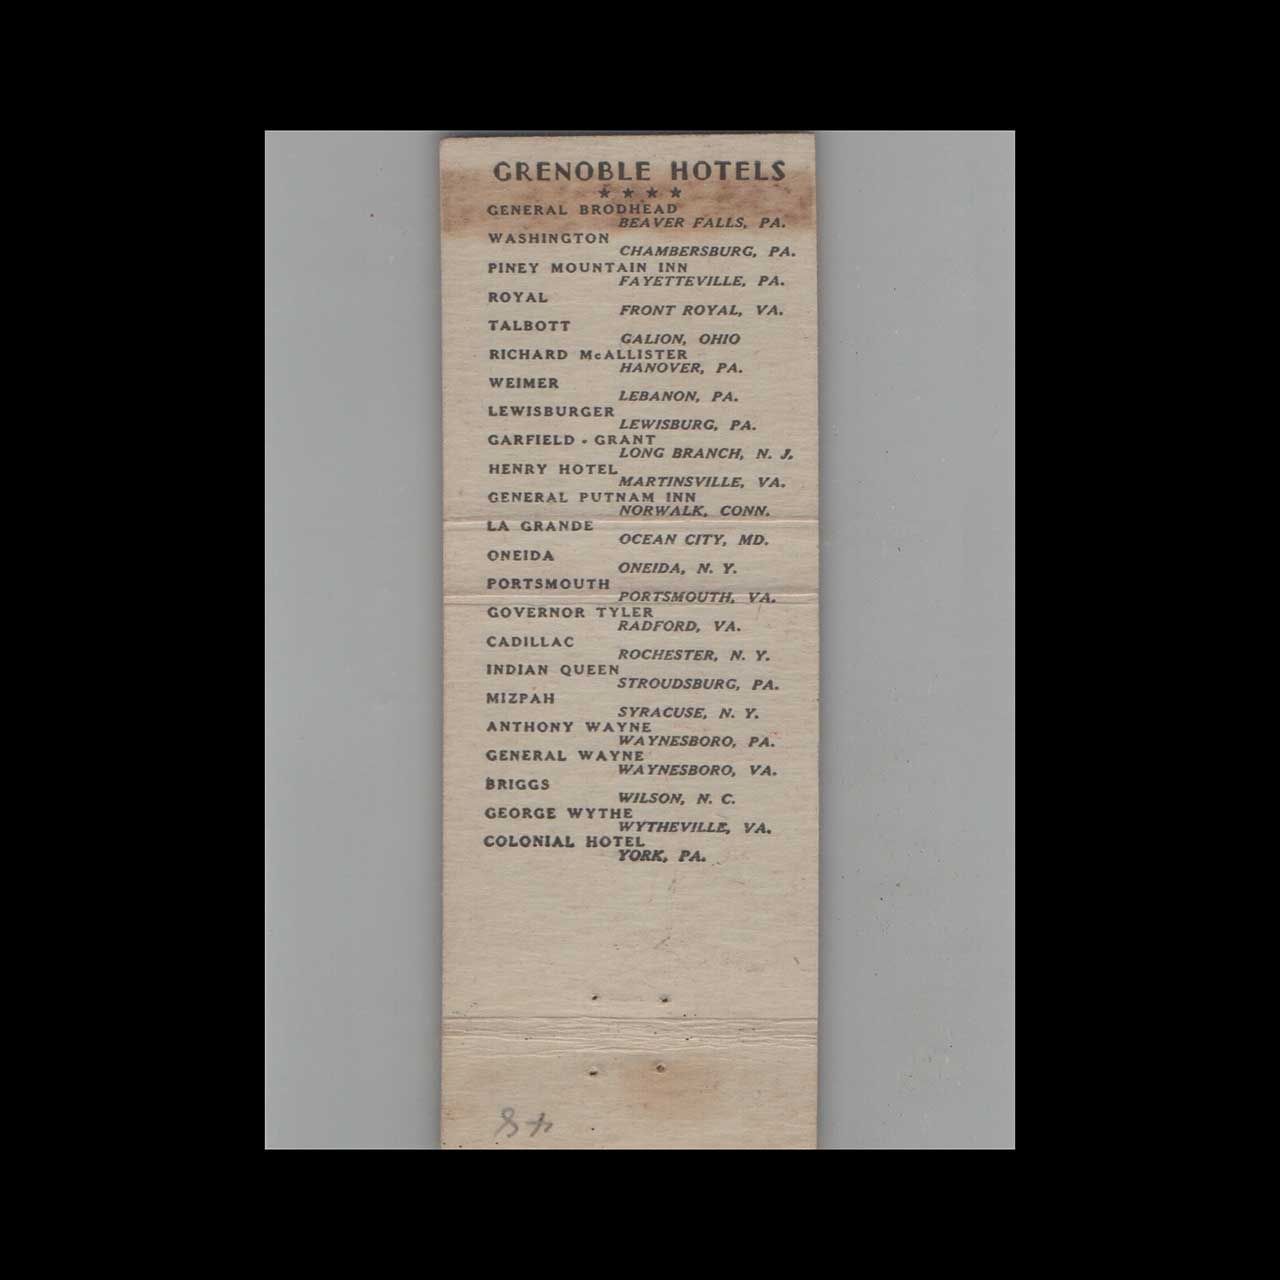 GRENOBLE HOTELS
★ ★ ★ ★
GENERAL BRODHEAD
BEAVER FALLS, PA.
WASHINGTON
CHAMBERSBURG, PA.
PINEY MOUNTAIN INN
FAYETTEVILLE, PA.
ROYAL
FRONT ROYAL, VA.
TALBOTT
GALION, OHIO
RICHARD McALLISTER
HANOVER, PA.
WEIMER
LEBANON, PA.
LEWISBURGER
LEWISBURG, PA.
GARFIELD - GRANT
LONG BRANCH, N. J.
HENRY HOTEL
MARTINSVILLE, VA.
GENERAL PUTNAM INN
NORWALK, CONN.
LA GRANDE
OCEAN CITY, MD.
ONEIDA
ONEIDA, N. Y.
PORTSMOUTH
PORTSMOUTH, VA.
GOVERNOR TYLER
RADFORD, VA.
CADILLAC
ROCHESTER, N. Y.
INDIAN QUEEN
STROUDSBURG, PA.
MIZPAH
SYRACUSE, N. Y.
ANTHONY WAYNE
WAYNESBORO, PA.
GENERAL WAYNE
WAYNESBORO, VA.
BRIGGS
WILSON, N. C.
GEORGE WYTHE
WYTHEVILLE, VA.
COLONIAL HOTEL
YORK, PA.